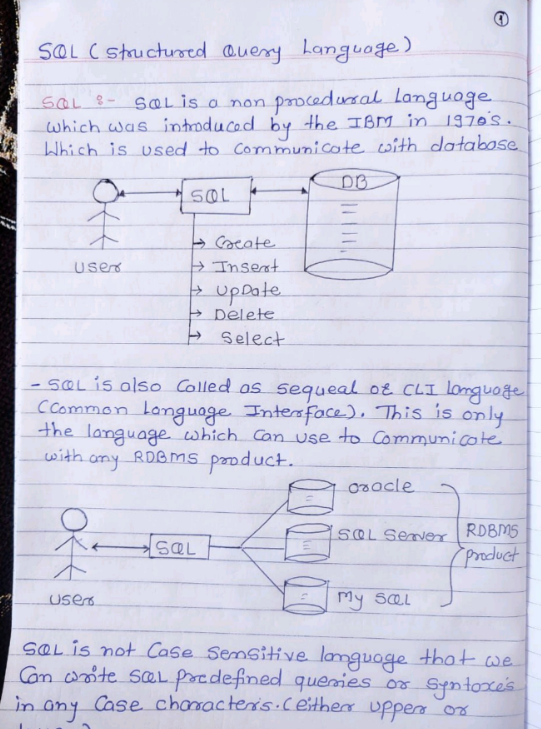 1
SQL (Structured Query Language)
SQL :- SQL is a non procedural Language
which was introduced by the IBM in 1970's.
Which is used to Communicate with database
SQL
DB
User
→ Create
→ Insert
→ UpDate
→ Delete
→ Select
- SQL is also Called as sequeal or CLI language
(Common Language Interface). This is only
the language which Can use to Communicate
with any RDBMS product.
oracle
SQL Server
RDBMS
product
SQL
User
My SQL
SQL is not Case Sensitive language that we
Can write SQL predefined queries or Syntoxe's
in any Case characters. (either upper or